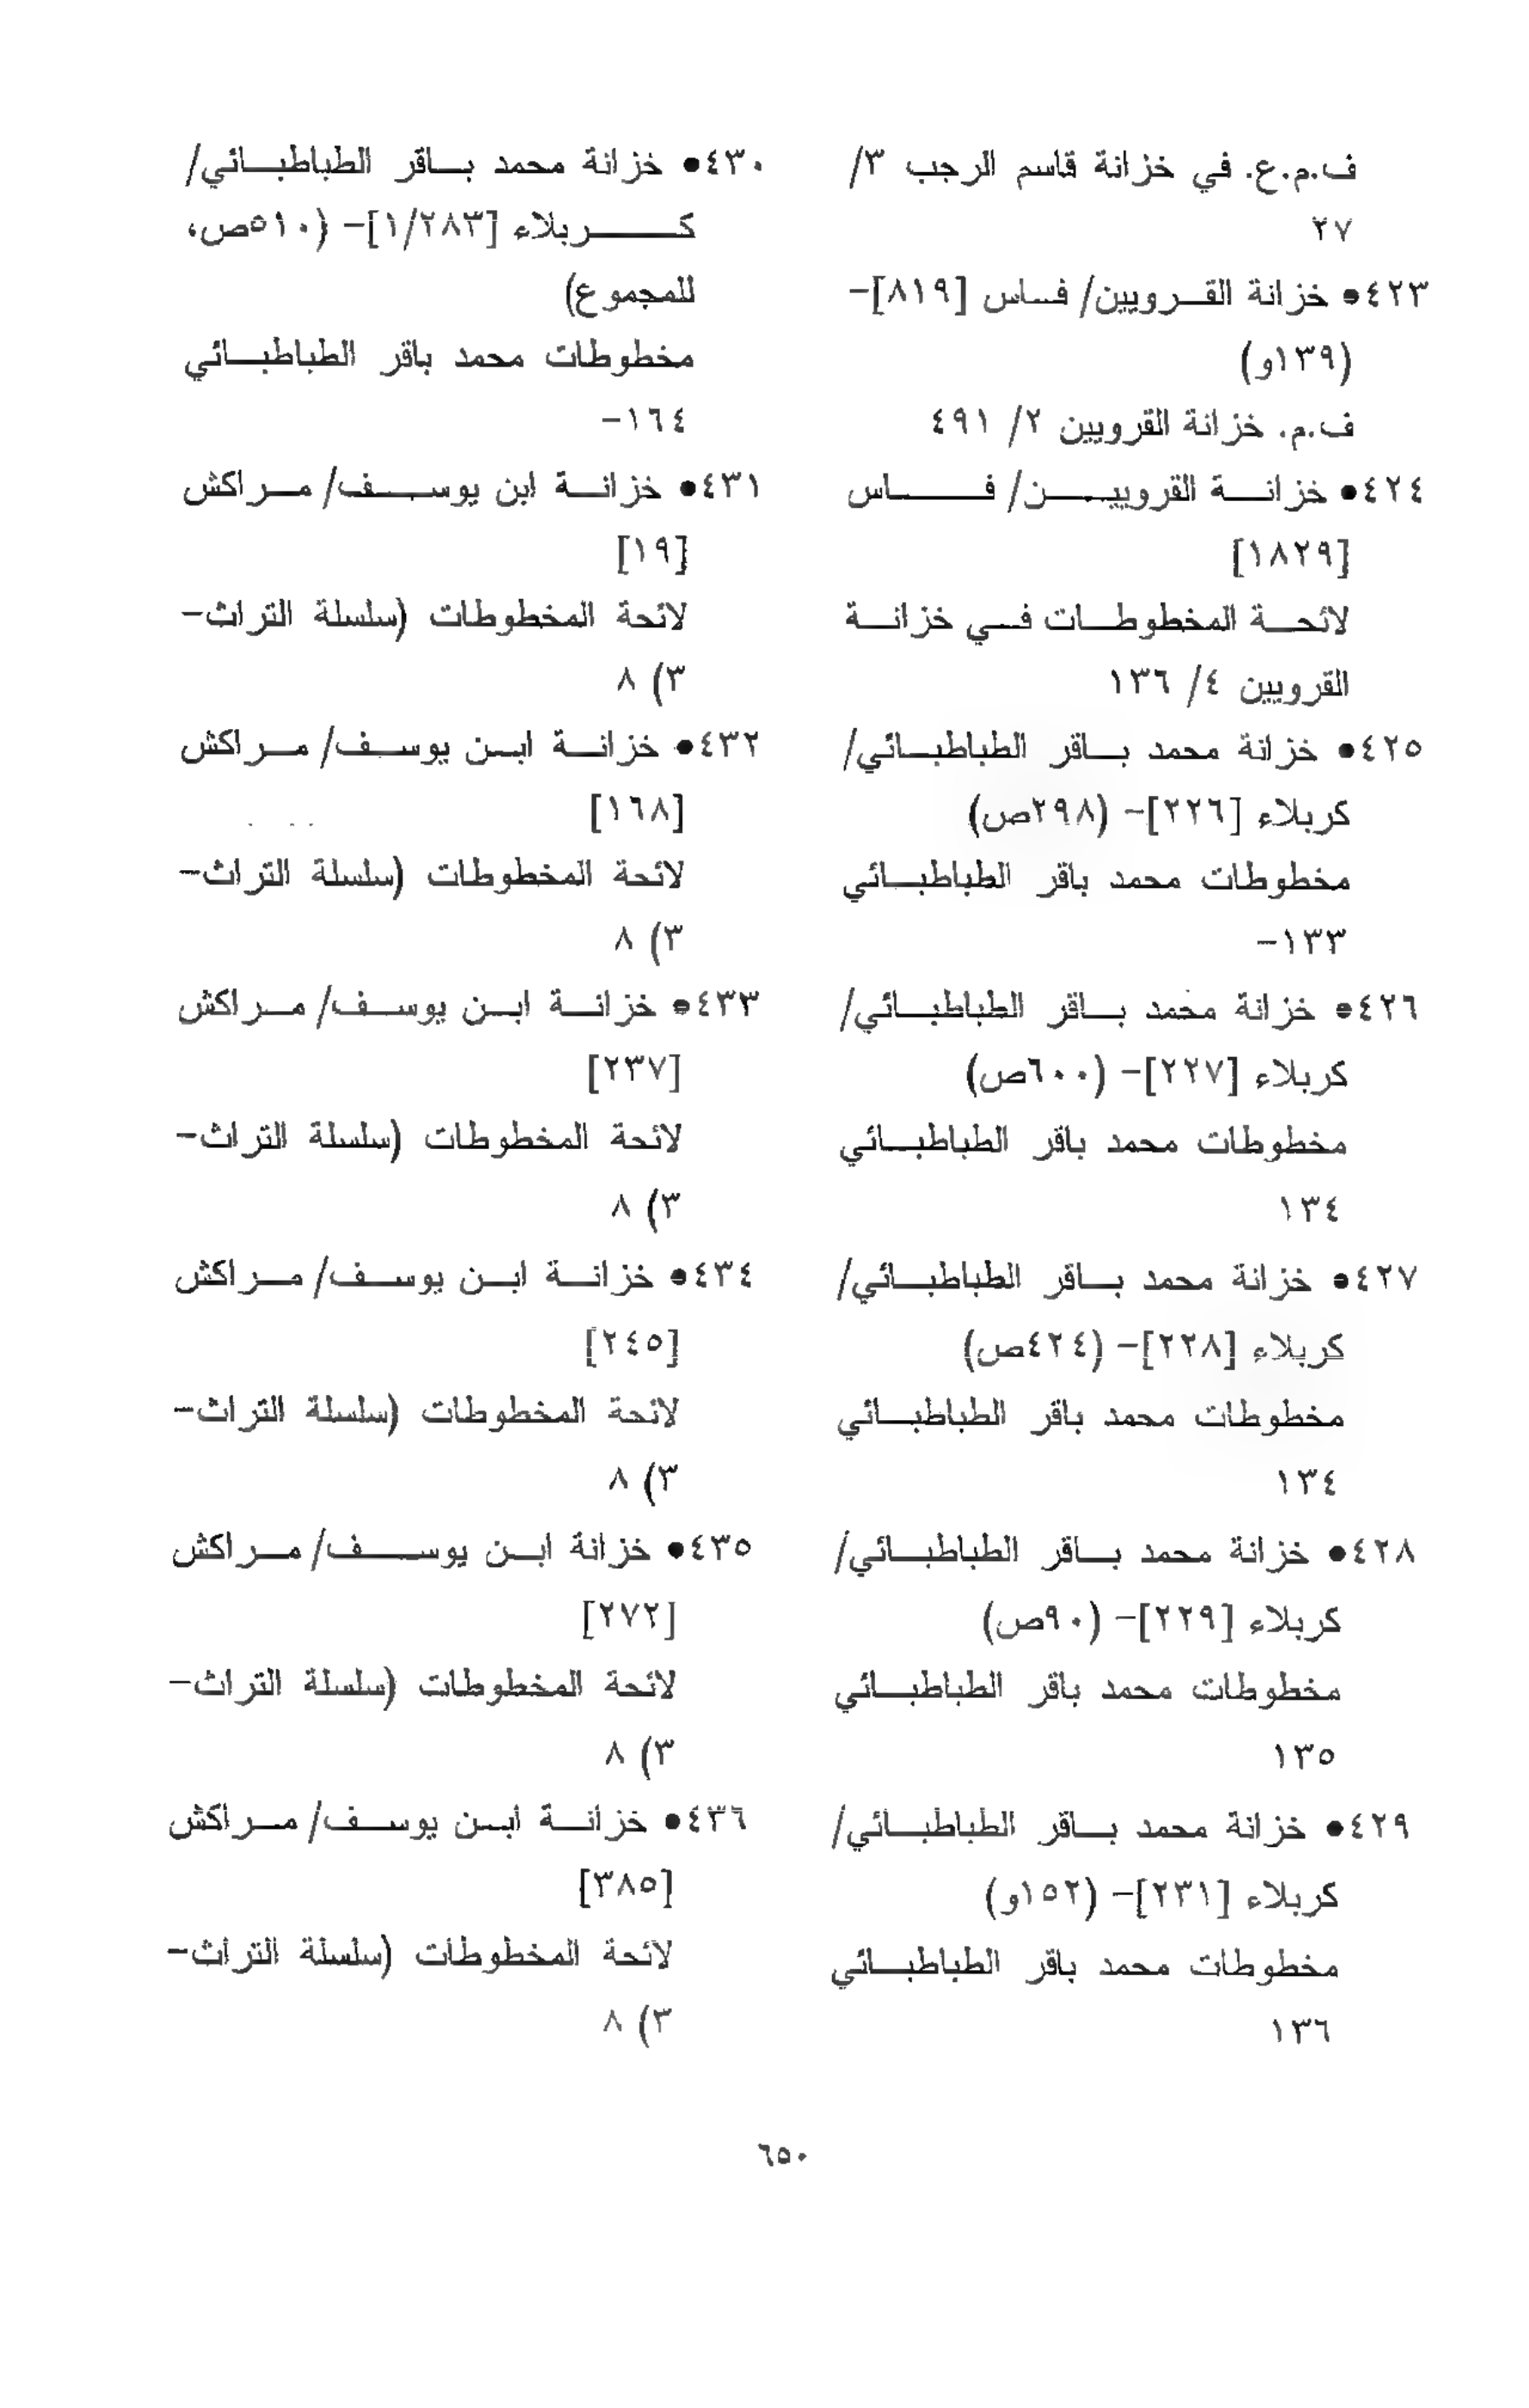 ف.م.ع. في خزانة قاسم الرجب ٣/
٢٧
٤٢٣● خزانة القرويين/ فاس [٨١٩]-
(١٣٩و)
ف.م. خزانة القرويين ٢/ ٤٩١
٤٢٤● خزانة القرويين/ فاس
[١٨٢٩]
لائحة المخطوطات في خزانة
القرويين ٤/ ١٣٦
٤٢٥● خزانة محمد باقر الطباطبائي/
كربلاء [٢٢٦]- (٢٩٨ص)
مخطوطات محمد باقر الطباطبائي
١٣٣-
٤٢٦● خزانة محمد باقر الطباطبائي/
كربلاء [٢٢٧]- (٦٠٠ص)
مخطوطات محمد باقر الطباطبائي
١٣٤
٤٢٧● خزانة محمد باقر الطباطبائي/
كربلاء [٢٢٨]- (٤٢٤ص)
مخطوطات محمد باقر الطباطبائي
١٣٤
٤٢٨● خزانة محمد باقر الطباطبائي/
كربلاء [٢٢٩]- (٩٠ص)
مخطوطات محمد باقر الطباطبائي
١٣٥
٤٢٩● خزانة محمد باقر الطباطبائي/
كربلاء [٢٣١]- (١٥٢و)
مخطوطات محمد باقر الطباطبائي
١٣٦
٤٣٠● خزانة محمد باقر الطباطبائي/
كربلاء [١/٢٨٣]- (٥١٠ص،
للمجموع)
مخطوطات محمد باقر الطباطبائي
١٦٤-
٤٣١● خزانة ابن يوسف/ مراكش
[١٩]
لائحة المخطوطات (سلسلة التراث-
٣) ٨
٤٣٢● خزانة ابن يوسف/ مراكش
[١٦٨]
لائحة المخطوطات (سلسلة التراث-
٣) ٨
٤٣٣● خزانة ابن يوسف/ مراكش
[٢٣٧]
لائحة المخطوطات (سلسلة التراث-
٣) ٨
٤٣٤● خزانة ابن يوسف/ مراكش
[٢٤٥]
لائحة المخطوطات (سلسلة التراث-
٣) ٨
٤٣٥● خزانة ابن يوسف/ مراكش
[٢٧٢]
لائحة المخطوطات (سلسلة التراث-
٣) ٨
٤٣٦● خزانة ابن يوسف/ مراكش
[٣٨٥]
لائحة المخطوطات (سلسلة التراث-
٣) ٨
٦٥٠